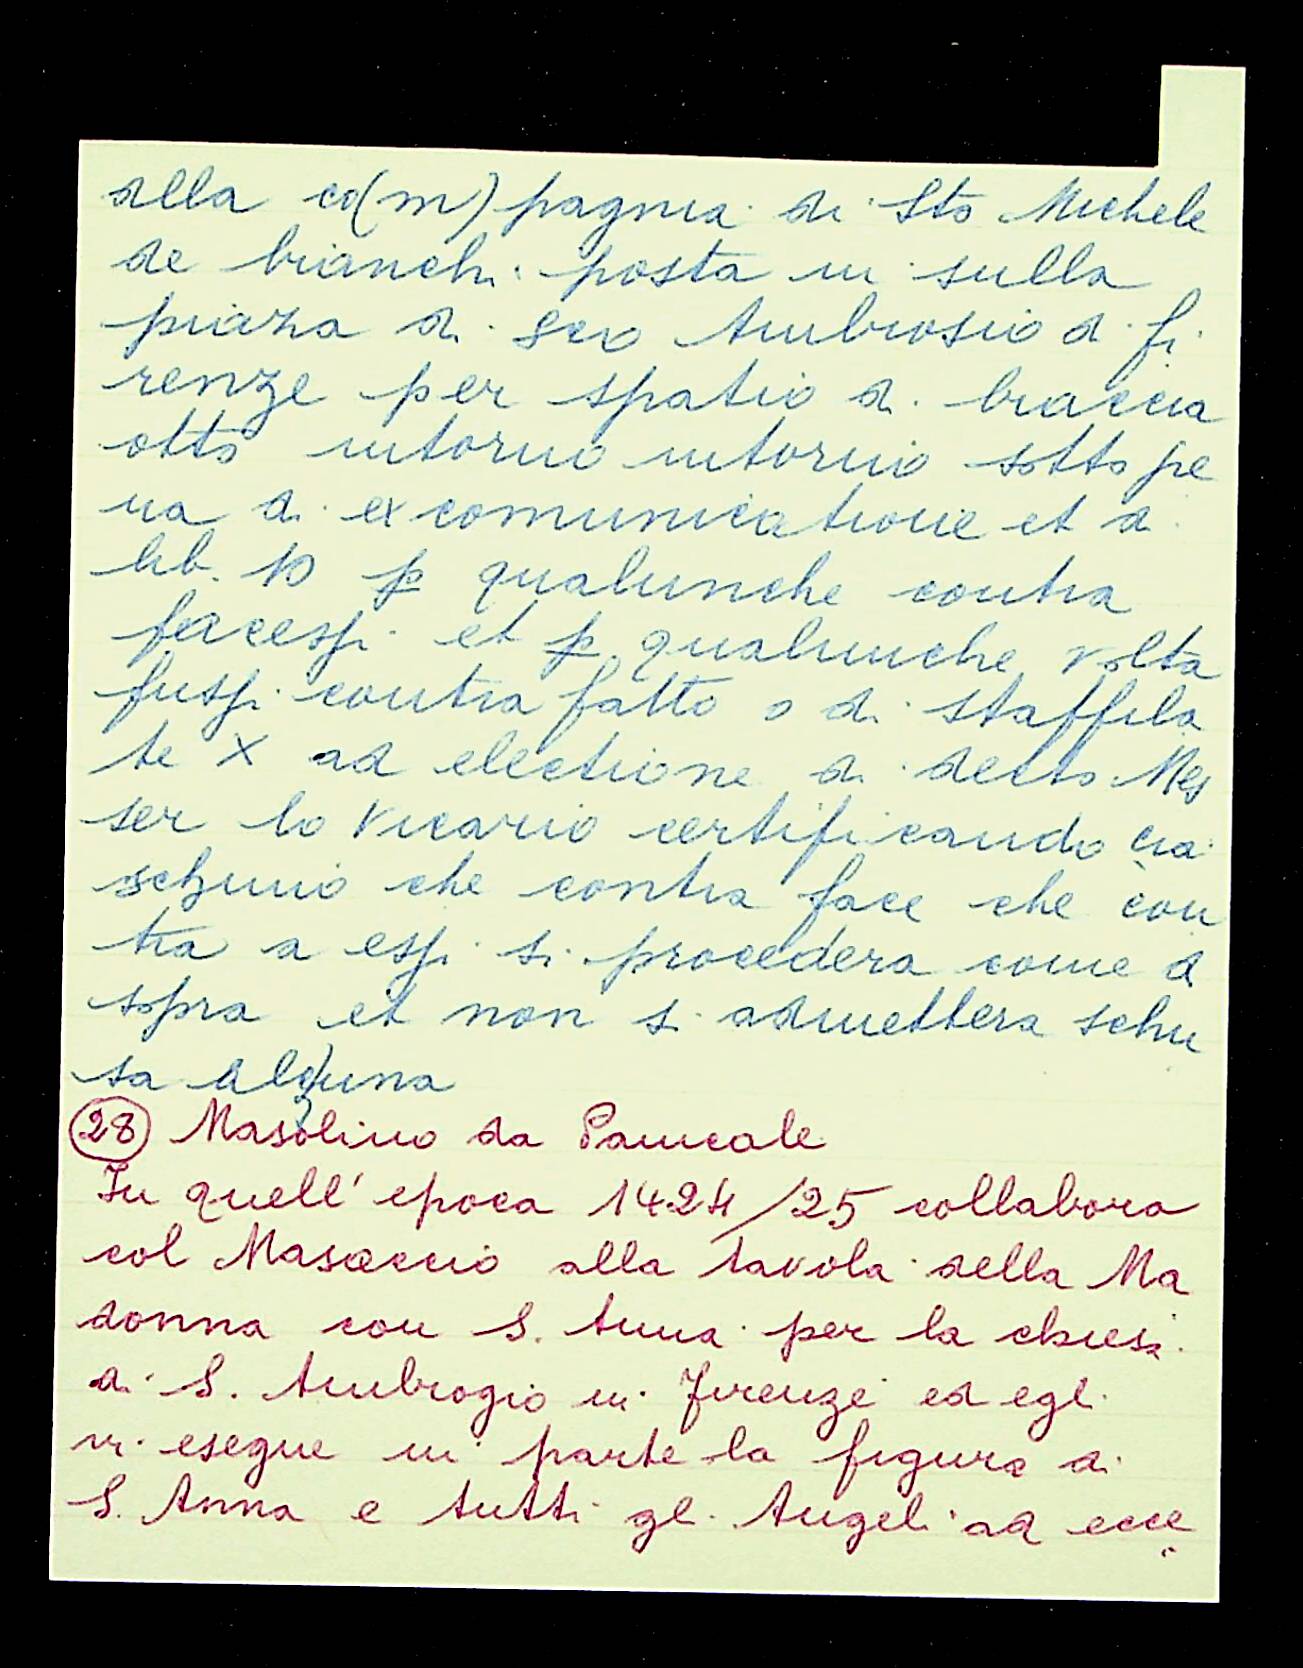 alla co(m)pagnia di Sto Michele
de bianchi posta in sulla
piaza di Sco Ambrosio di fi
renze per spatio di braccia
otto intorno intorno sotto pe
na di excomunicatione et di
lib. 10 p qualunche contra
facessi et p qualunche volta
fussi contra fatto o di staffila
te X ad electione di decto Mes
ser lo Vicario certificando cia
schuno che contra face che con
tra a essi si procedera come di
sopra et non si admettera schu
sa alcuna
(28) Masolino da Panicale
In quell'epoca 1424/25 collabora
col Masaccio alla tavola della Ma
donna con S. Anna per la chiesa
di S. Ambrogio in Firenze ed egli
vi esegue in parte la figura di
S. Anna e tutti gli Angeli ad ecce